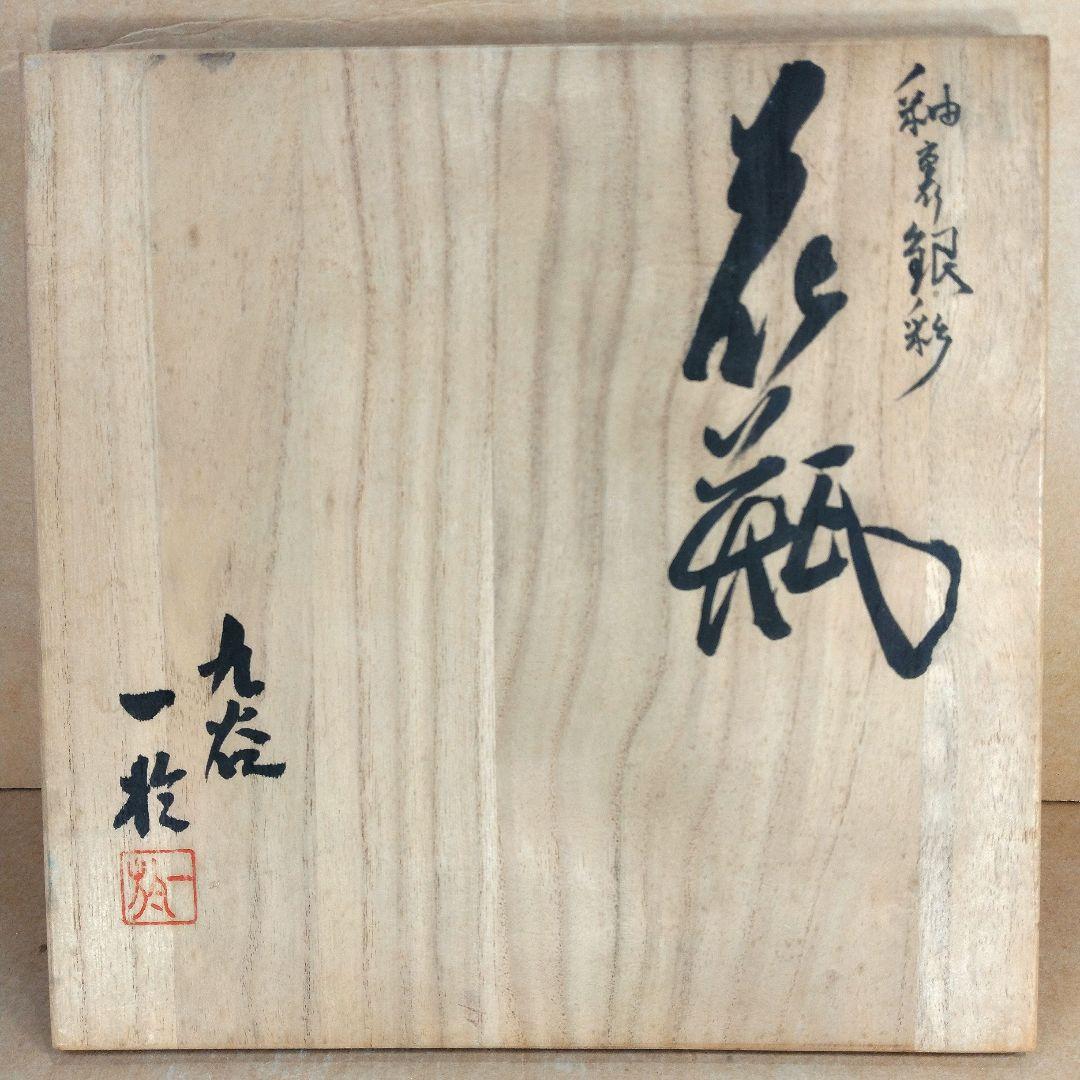 釉裏銀彩
花瓶
九谷
一於
一於